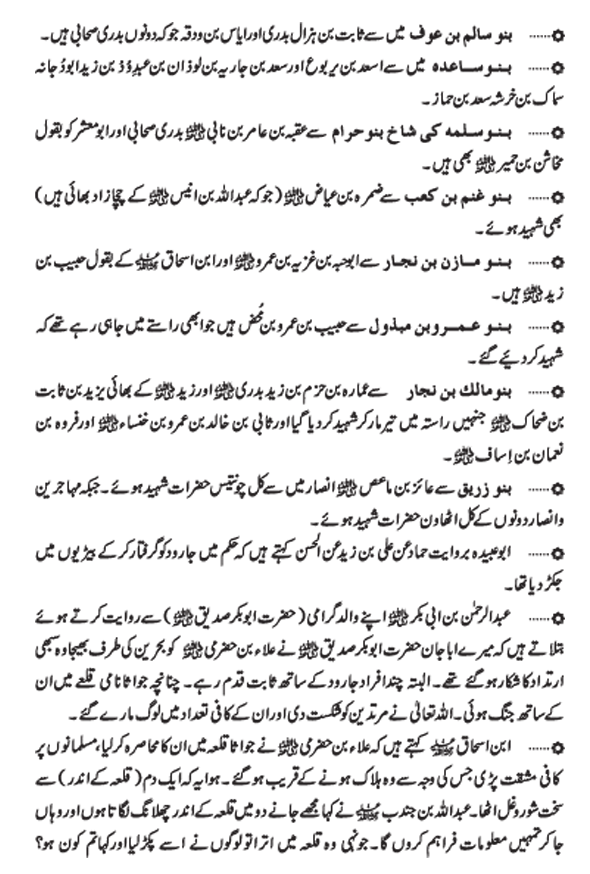 ۞...... بنو سالم بن عوف میں سے ثابت بن ہزال بدری اور ایاس بن ودقہ جو کہ دونوں بدری صحابی ہیں۔
۞...... بنو ساعدہ میں سے اسعد بن یربوع اور سعد بن جاریہ بن لوذان بن عبدِوُدّ بن زید ابودُجانہ
سماک بن خرشہ سعد بن حماز۔
۞...... بنو سلمہ کی شاخ بنو حرام سے عقبہ بن عامر بن نابی رضی اللہ عنہ بدری صحابی اور ابومعشر کو بقول
مخاشن بن حمیر رضی اللہ عنہ بھی ہیں۔
۞...... بنو غنم بن کعب سے ضمرہ بن عیاض رضی اللہ عنہ (جو کہ عبداللہ بن انیس رضی اللہ عنہ کے چچازاد بھائی ہیں)
بھی شہید ہوئے۔
۞...... بنو مازن بن نجار سے ابوحبہ بن غزیہ بن عمرو رضی اللہ عنہ اور ابن اسحاق رحمہ اللہ کے بقول حبیب بن
زید رضی اللہ عنہ ہیں۔
۞...... بنو عمرو بن مبذول سے حبیب بن عمرو بن مُحض ہیں جو ابھی راستے میں جا ہی رہے تھے کہ
شہید کر دیئے گئے۔
۞...... بنو مالك بن نجار سے عمارہ بن حزم بن زید بدری رضی اللہ عنہ اور زید رضی اللہ عنہ کے بھائی یزید بن ثابت
بن ضحاک رضی اللہ عنہ جنہیں راستہ میں تیر مار کر شہید کر دیا گیا اور ثابی بن خالد بن عمرو بن خنساء رضی اللہ عنہ اور فروہ بن
نعمان بن اِساف رضی اللہ عنہ۔
۞...... بنو زریق سے عائز بن ماعص رضی اللہ عنہ انصار میں سے کل چونتیس حضرات شہید ہوئے۔ جبکہ مہاجرین
و انصار دونوں کے کل اٹھاون حضرات شہید ہوئے۔
۞...... ابوعبیدہ بروایت حماد عن علی بن زید عن الحسن کہتے ہیں کہ حکم میں جارود کو گرفتار کر کے بیڑیوں میں
جکڑ دیا تھا۔
۞...... عبدالرحمٰن بن ابی بکر رضی اللہ عنہ اپنے والد گرامی (حضرت ابوبکر صدیق رضی اللہ عنہ) سے روایت کرتے ہوئے
بتلاتے ہیں کہ میرے ابا جان حضرت ابوبکر صدیق رضی اللہ عنہ نے علاء بن حضرمی رضی اللہ عنہ کو بحرین کی طرف بھیجا وہ سبھی
ارتداد کا شکار ہو گئے تھے۔ البتہ چند افراد جارود کے ساتھ ثابت قدم رہے۔ چنانچہ جواثا نامی قلعے میں ان
کے ساتھ جنگ ہوئی۔ اللہ تعالیٰ نے مرتدین کو شکست دی اور ان کے کافی تعداد میں لوگ مارے گئے۔
۞...... ابن اسحاق رحمہ اللہ کہتے ہیں کہ علاء بن حضرمی رضی اللہ عنہ نے جواثا قلعہ میں ان کا محاصرہ کر لیا، مسلمانوں پر
کافی مشقت پڑی جس کی وجہ سے وہ ہلاک ہونے کے قریب ہو گئے۔ ہوا یہ کہ ایک دم (قلعہ کے اندر) سے
سخت شور و غل اٹھا۔ عبداللہ بن جندب رحمہ اللہ نے کہا مجھے جانے دو میں قلعہ کے اندر چھلانگ لگاتا ہوں اور وہاں
جا کر تمہیں معلومات فراہم کروں گا۔ جونہی وہ قلعہ میں اترا تو لوگوں نے اسے پکڑ لیا اور کہا تم کون ہو؟